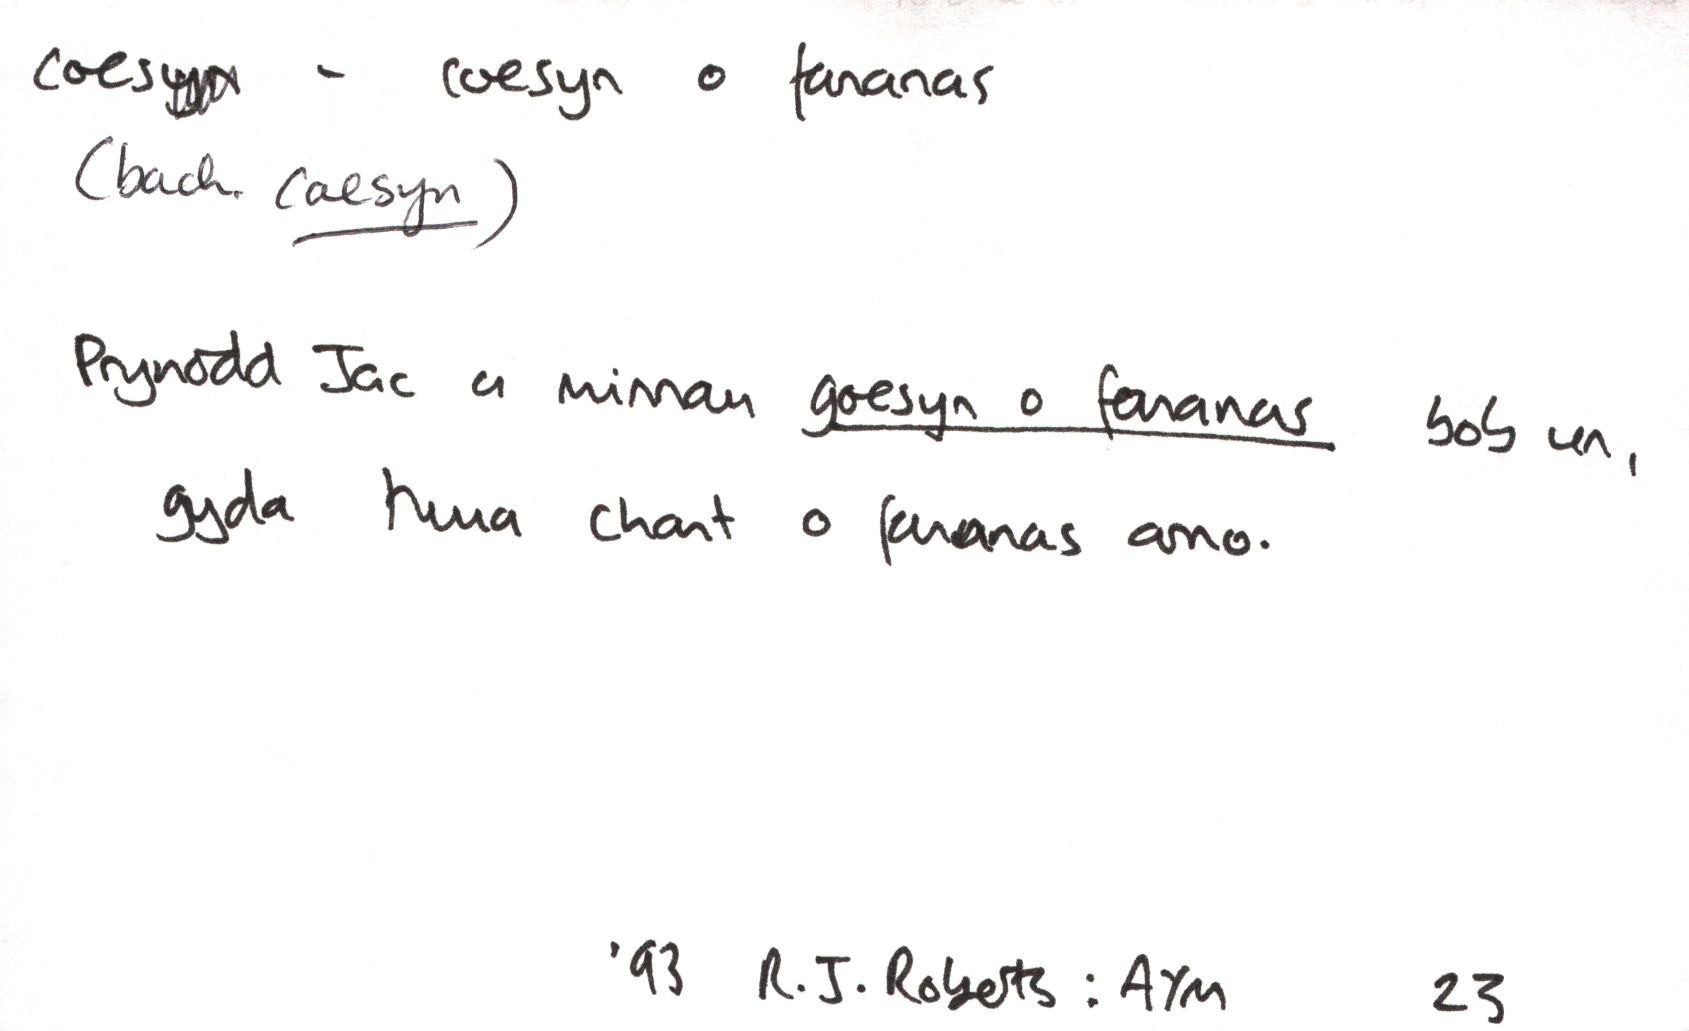 coesyn - coesyn o fananas
(bach. coesyn)
Prynodd Jac a minnau goesyn o fananas bob un,
gyda chant o fananas arno.
'93 R.J. Roberts : AYM 23